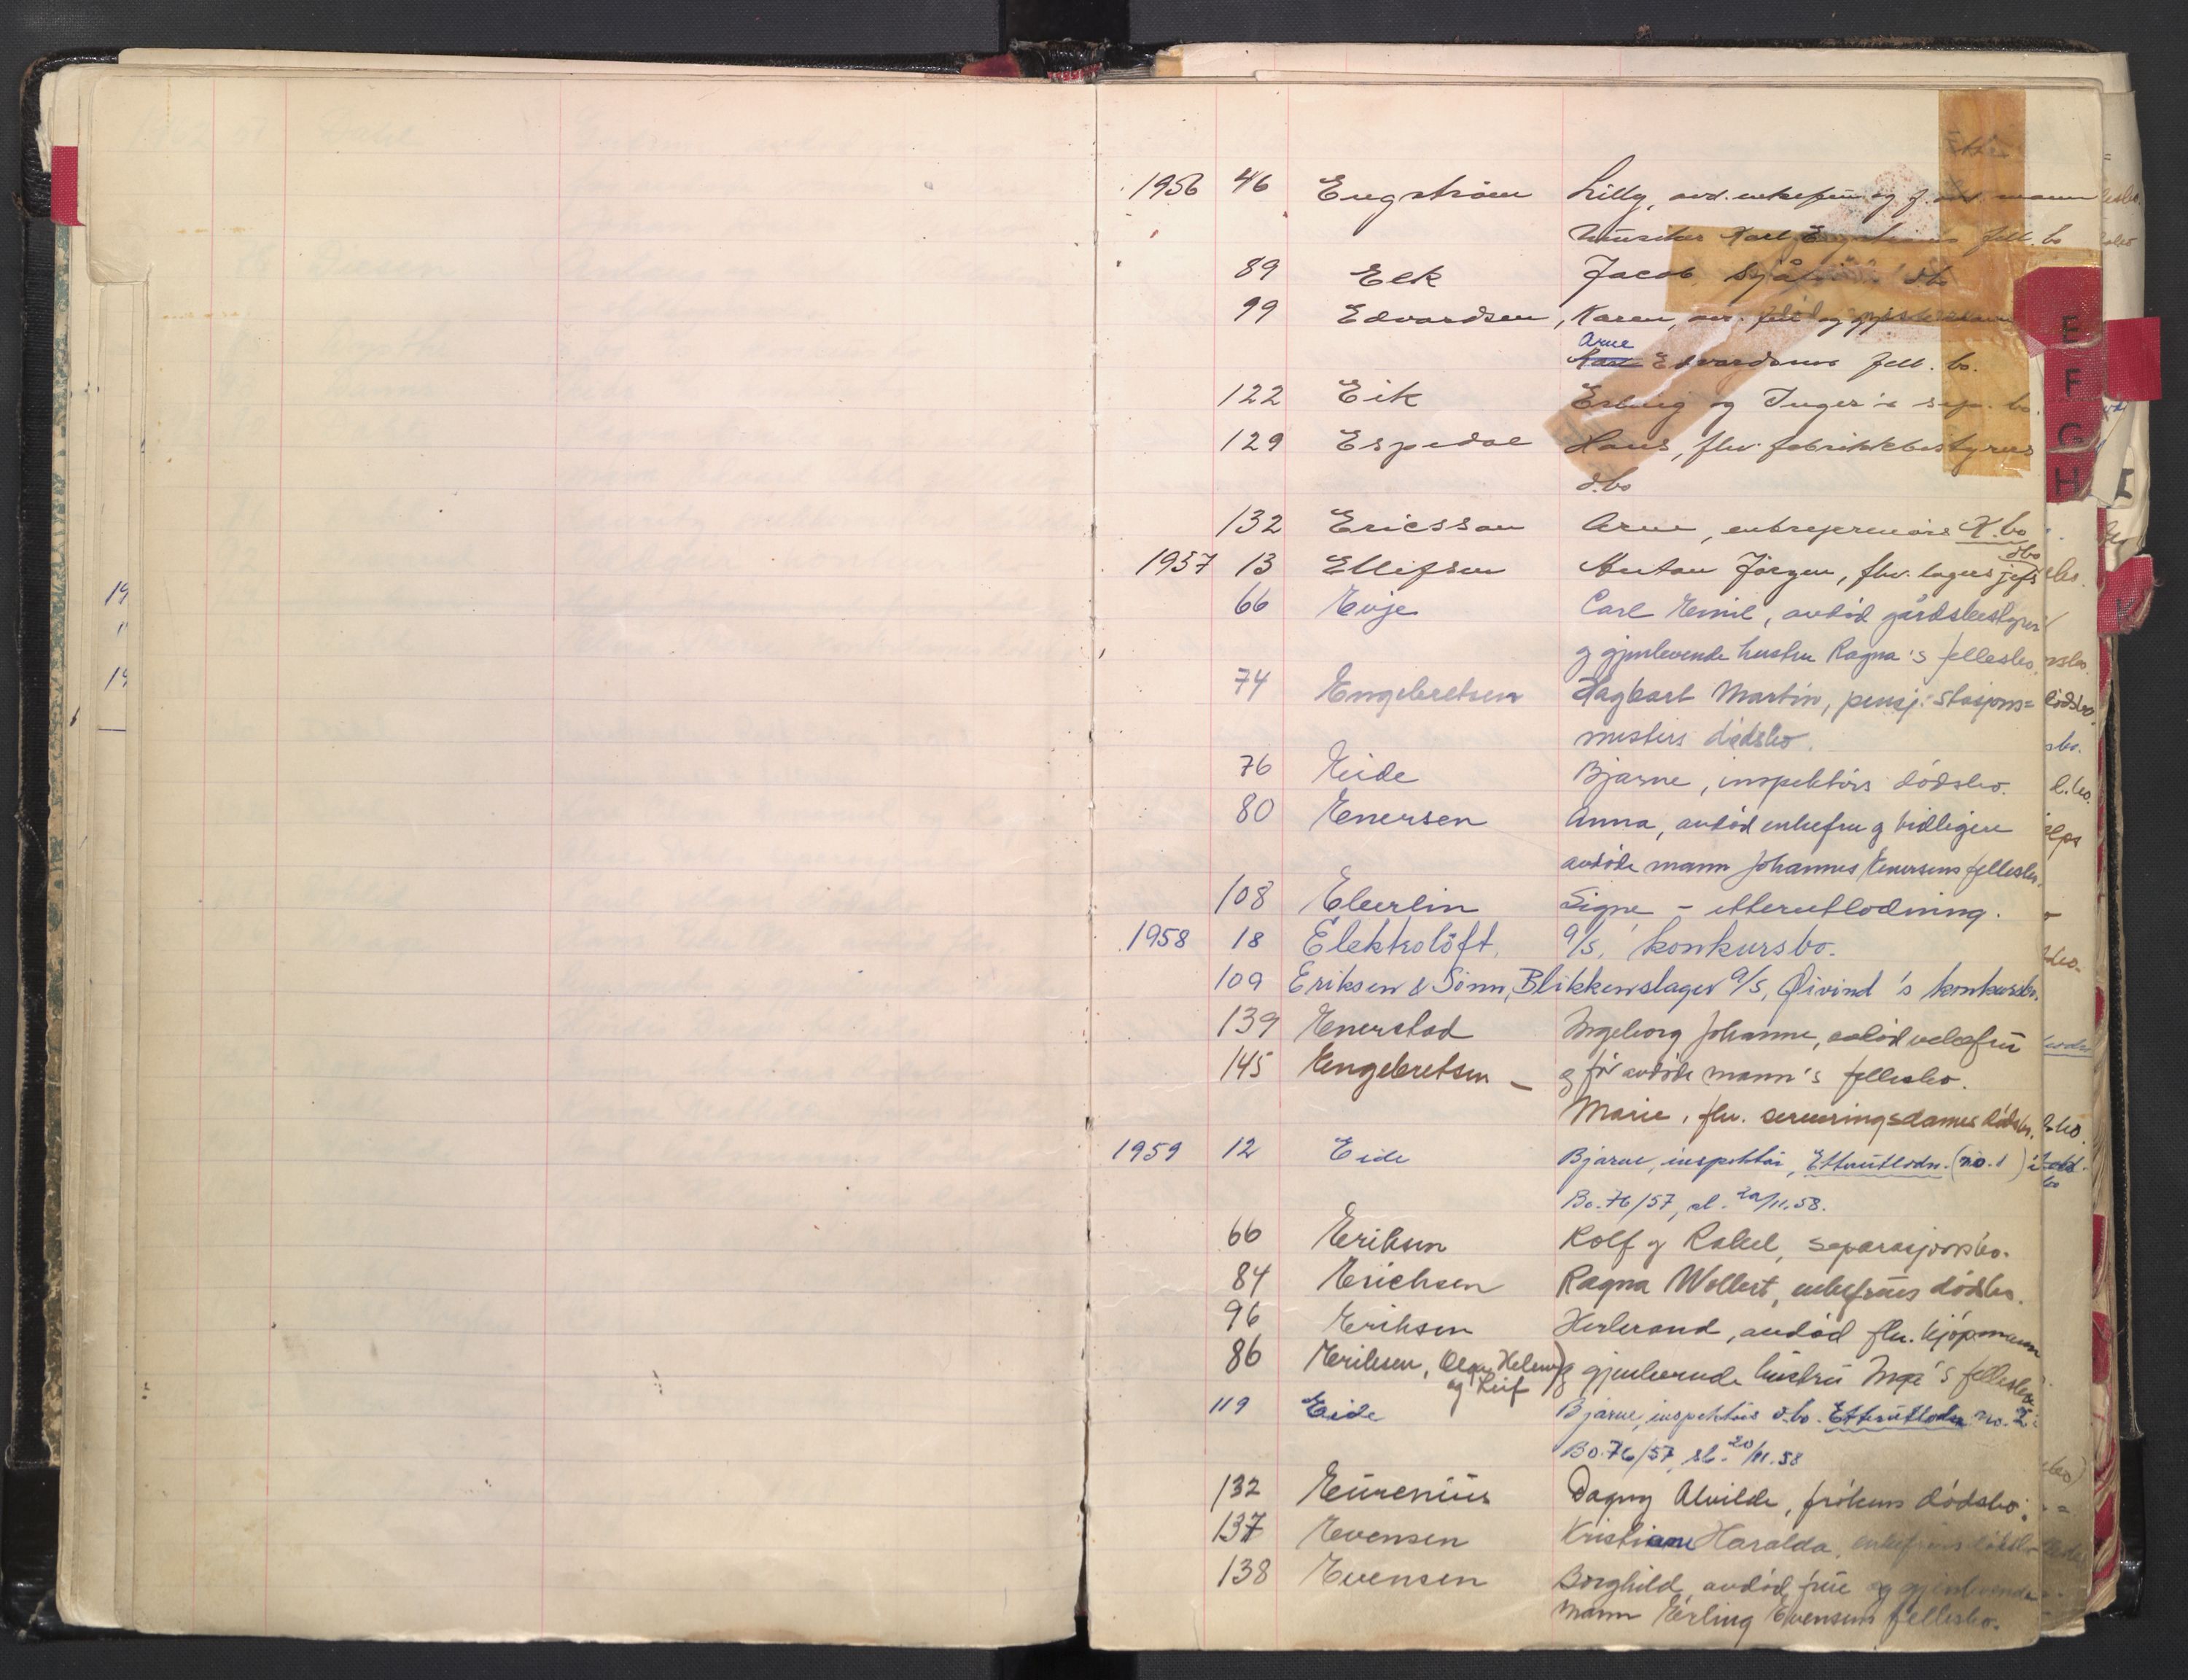 1956 46 Engström Lilly, avd. enkefru og f. avd. mann
Karl Engströms fell. bo
89 Eek Jacob db
99 Edvardsen, Karen, avd. frue og gjenlev. mann
Arne
Karl Edvardsens fell. bo.
122 Eik Erling og Inger's sep. bo.
129 Espedal Hans, fhv. fabrikkbestyrers
d.bo
132 Ericsson Arne, entreprenörs K.bo
dbo
1957 13 Ellifsen Anton Jörgen, fhv. lagersjefs
66 Evje Carl Emil, avdöd gårdsbestyrer
og gjenlevende hustru Ragna's fellesbo.
74 Engebretsen Hagbart Martin, pensj. stasjons=
mesters dödsbo.
76 Eide Bjarne, inspektörs dödsbo.
80 Enersen Anna, avdöd enkefru og tidligere
avdöde mann Johannes Enersens fellesbo.
108 Eberlin Signe – etterutlodning.
1958 18 Elektrolöft, a/s, konkursbo.
109 Eriksen & Sönn, Blikkenslager a/s, Øivind 's konkursbo.
139 Enerstad Ingeborg Johanne, avdöd enkefru
145 Engebretsen – og för avdöde mann's fellesbo.
Marie, fhv. serveringsdames dödsbo.
1959 12 Eide Bjarne, inspektör, Etterutlodn. (no. 1) i
Bo. 76/57, sl. 20/11.58.
66 Eriksen Rolf og Rakel, separasjonsbo.
84 Erichsen Ragna Wollert, enkefrues dödsbo.
96 Eriksen Herbrand, avdöd fhv. kjöpmann
86 Eriksen, Olga Helene og gjenlevende hustru Inga's fellesbo
og Leif
119 Eide Bjarne, inspektörs d.bo. Etterutlodn no. 2 i
Bo. 76/57, sl. 20/11.58
132 Eurenius Dagny Alvilde, frökens dödsbo.
137 Evensen Kristiane Haralda, enkefrues dödsbo
138 Evensen Borghild, avdöd frue og gjenlevende
mann Erling Evensens fellesbo.
E
F
G
H
K